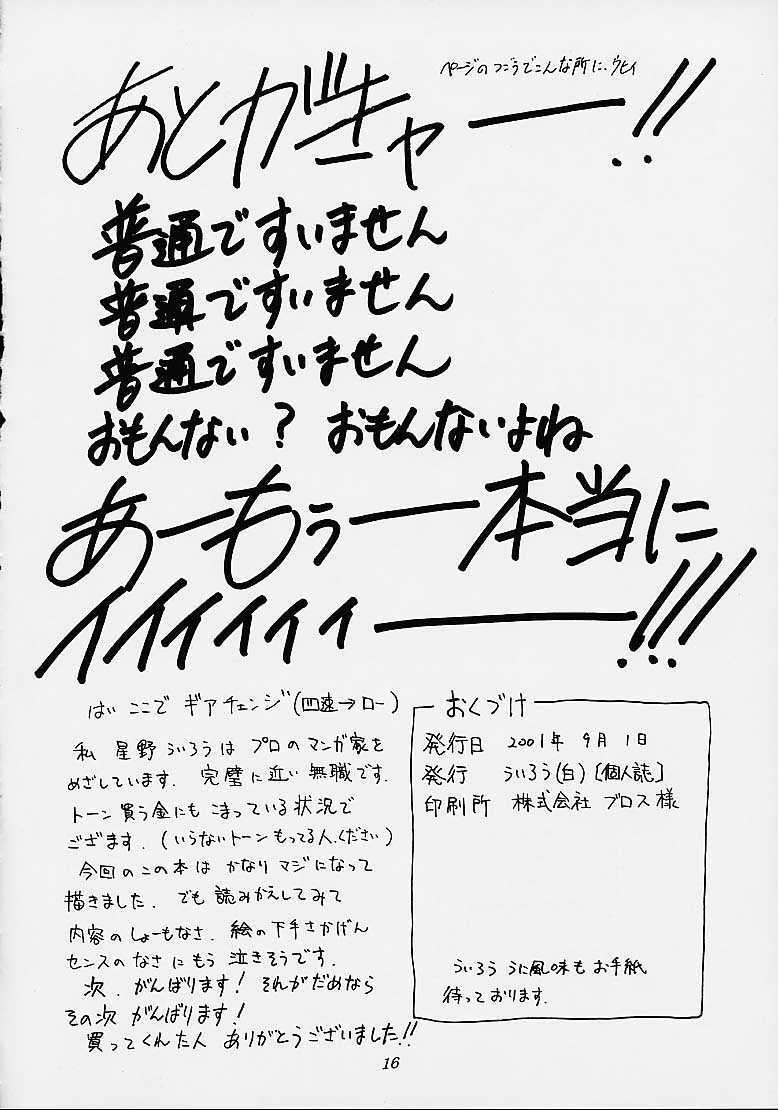 ページのつごうでこんな所に、ウヒィ
あとがキャー!!
普通ですいません
普通ですいません
普通ですいません
おもんない? おもんないよね
あーもぅー本当に
イイィィィィー!!!
はい ここで ギアチェンジ(四速→ロー)
私 星野ういろうは プロのマンガ家を
めざしています. 完璧に近い 無職です.
トーン買う金にも こまっている 状況で
ござます. (いらないトーンもってる人、ください)
今回のこの本は かなり マジになって
描きました. でも 読みかえしてみて
内容のしょーもなさ. 絵の下手さかげん
センスのなさ にもう 泣きそうです.
次、がんばります! それがだめなら
その次 がんばります!
買ってくれた人 ありがとうございました!!
おくづけ
発行日 2001年 9月1日
発行 ういろう(白)[個人誌]
印刷所 株式会社 ブロス様
ういろう うに風味も お手紙
待っております.
16